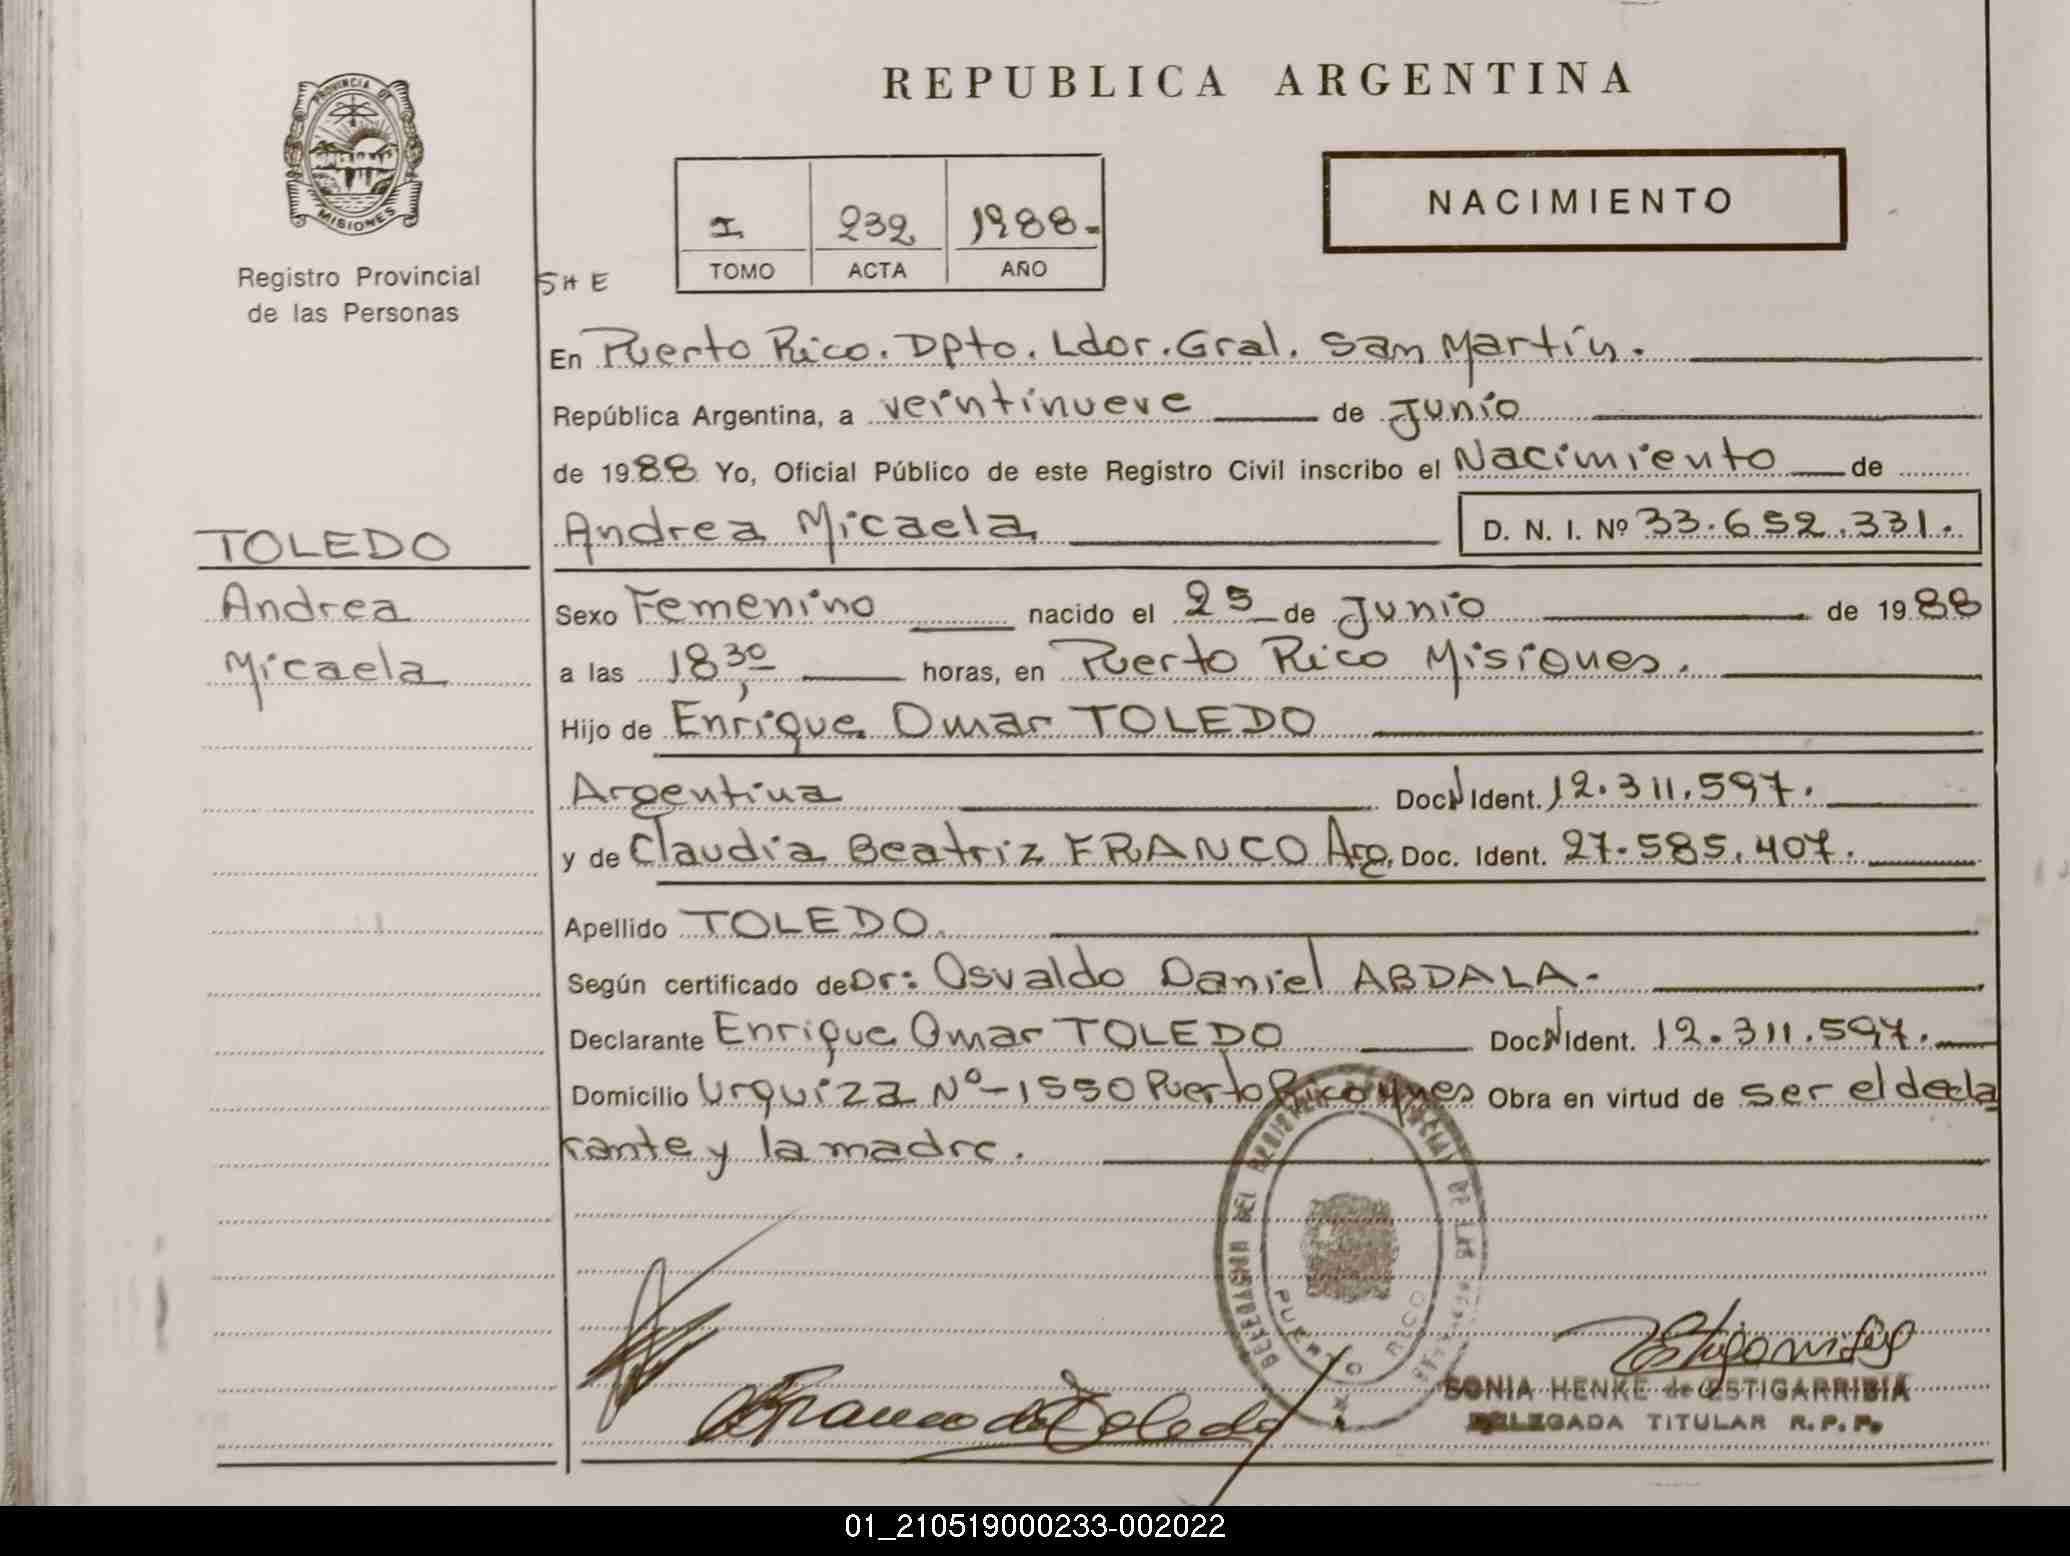 REPUBLICA ARGENTINA
PROVINCIA DE
MISIONES
Registro Provincial
de las Personas
I 232 1988.
TOMO ACTA AÑO
NACIMIENTO
SHE
En Puerto Rico. Dpto. Ldor. Gral. San Martín.
República Argentina, a veintinueve de Junio
de 1988 Yo, Oficial Público de este Registro Civil inscribo el Nacimiento de
Andrea Micaela D. N. I. Nº 33.652.331.
TOLEDO
Andrea
Micaela
Sexo Femenino nacido el 25 de Junio de 1988
a las 18,30 horas, en Puerto Rico Misiones.
Hijo de Enrique Omar TOLEDO
Argentina Doc. Ident. 12.311.597.
y de Claudia Beatriz FRANCO Arg. Doc. Ident. 27.585.407.
Apellido TOLEDO.
Según certificado de Dr: Osvaldo Daniel ABDALA.
Declarante Enrique Omar TOLEDO Doc. Ident. 12.311.597.
Domicilio Urquiza Nº-1550 Puerto Rico Mnes Obra en virtud de ser el decla
rante y la madre.
DELEGACION DEL REGISTRO PROVINCIAL DE LAS
PUERTO RICO
Franco de Toledo
SONIA HENKE de ESTIGARRIBIA
DELEGADA TITULAR R.P.P.
01_210519000233-002022